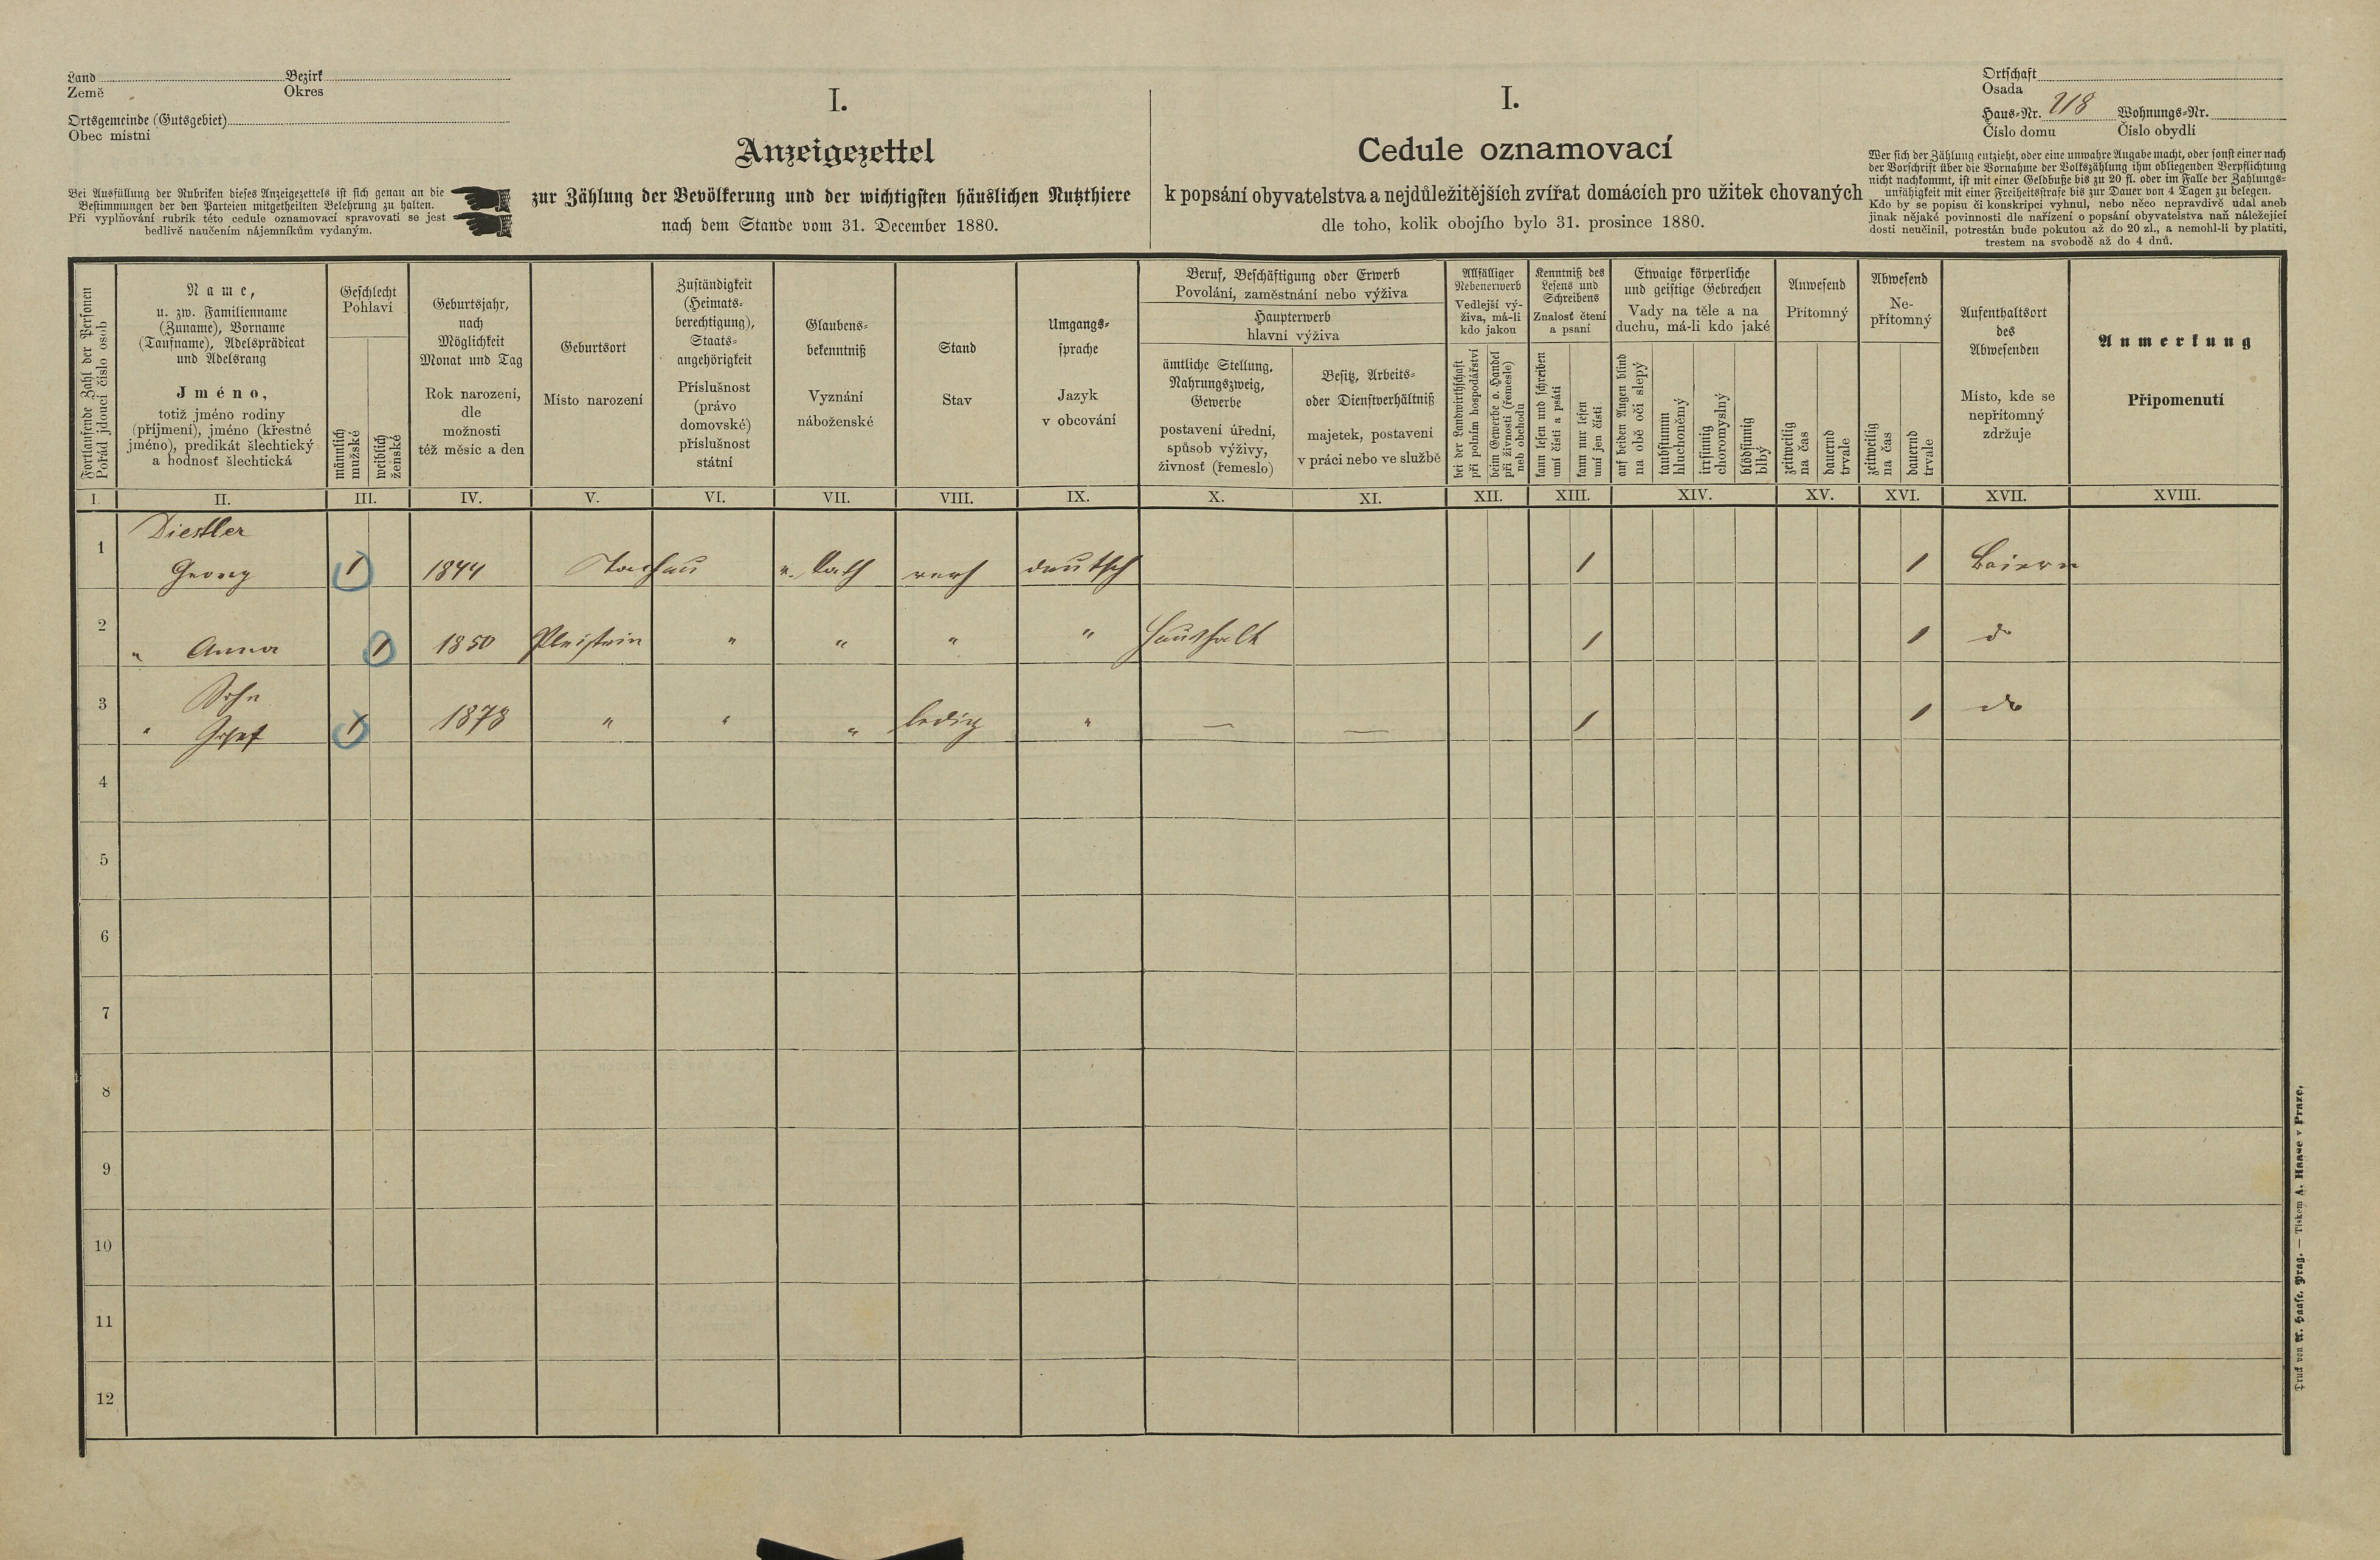 Land Bezirk
Země Okres
Ortsgemeinde (Gutsgebiet)
Obec místní
Bei Ausfüllung der Rubriken dieses Anzeigezettels ist sich genau an die
Bestimmungen der den Parteien mitgetheilten Belehrung zu halten.
Při vyplňování rubrik této cedule oznamovací spravovati se jest
bedlivě naučením nájemníkům vydaným.
I.
Anzeigezettel
zur Zählung der Bevölkerung und der wichtigsten häuslichen Nutzthiere
nach dem Stande vom 31. December 1880.
I.
Cedule oznamovací
k popsání obyvatelstva a nejdůležitějších zvířat domácích pro užitek chovaných
dle toho, kolik obojího bylo 31. prosince 1880.
Ortschaft
Osada
Haus-Nr. 218 Wohnungs-Nr.
Číslo domu Číslo obydlí
Wer sich der Zählung entzieht, oder eine unwahre Angabe macht, oder sonst einer nach
der Vorschrift über die Vornahme der Volkszählung ihm obliegenden Verpflichtung
nicht nachkommt, ist mit einer Geldbuße bis zu 20 fl. oder im Falle der Zahlungs-
unfähigkeit mit einer Freiheitsstrafe bis zur Dauer von 4 Tagen zu belegen.
Kdo by se popisu či konskripci vyhnul, nebo něco nepravdivě udal aneb
jinak nějaké povinnosti dle nařízení o popsání obyvatelstva naň náležející
dosti neučinil, potrestán bude pokutou až do 20 zl., a nemohl-li by platiti,
trestem na svobodě až do 4 dnů.
Fortlaufende Zahl der Personen
Pořád jdoucí číslo osob
Name,
u. zw. Familienname
(Zuname), Vorname
(Taufname), Adelsprädicat
und Adelsrang
Jméno,
totiž jméno rodiny
(příjmení), jméno (křestné
jméno), predikát šlechtický
a hodnosť šlechtická
Geschlecht
Pohlaví
männlich
mužské
weiblich
ženské
Geburtsjahr,
nach
Möglichkeit
Monat und Tag
Rok narození,
dle
možnosti
též měsíc a den
Geburtsort
Místo narození
Zuständigkeit
(Heimats-
berechtigung),
Staats-
angehörigkeit
Příslušnost
(právo
domovské)
příslušnost
státní
Glaubens-
bekenntniß
Vyznání
náboženské
Stand
Stav
Umgangs-
sprache
Jazyk
v obcování
Beruf, Beschäftigung oder Erwerb
Povolání, zaměstnání nebo výživa
Haupterwerb
hlavní výživa
ämtliche Stellung,
Nahrungszweig,
Gewerbe
postavení úřední,
spůsob výživy,
živnosť (řemeslo)
Besitz, Arbeits-
oder Dienstverhältniß
majetek, postavení
v práci nebo ve službě
Allfälliger
Nebenerwerb
Vedlejší vý-
živa, má-li
kdo jakou
bei der Landwirthschaft
při polním hospodářství
beim Gewerbe o. Handel
při živnosti (řemesle)
neb obchodu
Kenntniß des
Lesens und
Schreibens
Znalosť čtení
a psaní
kann lesen und schreiben
umí čísti a psáti
kann nur lesen
umí jen čísti
Etwaige körperliche
und geistige Gebrechen
Vady na těle a na
duchu, má-li kdo jaké
auf beiden Augen blind
na obě oči slepý
taubstumm
hluchoněmý
irrsinnig
choromyslný
blödsinnig
blbý
Anwesend
Přítomný
zeitweilig
na čas
dauernd
trvale
Abwesend
Ne-
přítomný
zeitweilig
na čas
dauernd
trvale
Aufenthaltsort
des
Abwesenden
Místo, kde se
nepřítomný
zdržuje
Anmerkung
Připomenutí
I. II. III. IV. V. VI. VII. VIII. IX. X. XI. XII. XIII. XIV. XV. XVI. XVII. XVIII.
Diestler
1 Georg 1 1844 Tachau r. kath verh deutsch 1 1 Baiern
2 " Anna 1 1850 Pleistein " " " " Haushalt 1 1 do
Sohn
3 " Josef 1 1878 " " " ledig " — — 1 1 do
4
5
6
7
8
9
10
11
12
Druck von A. Haase, Prag. — Tiskem A. Haase v Praze.